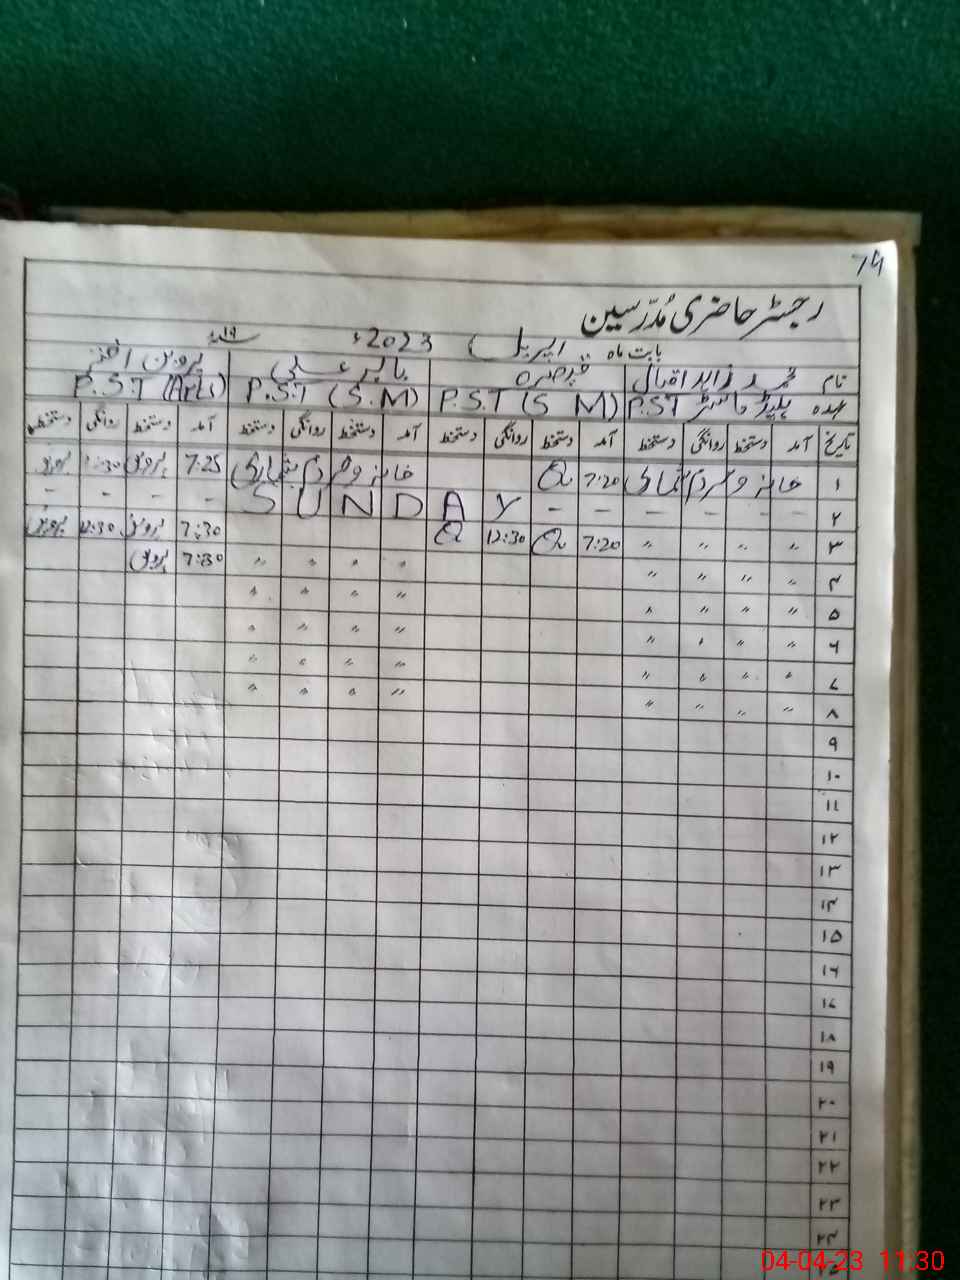 74
رجسٹر حاضری مُدرّسین
بابت ماہ اپریل 2023ء ۱۹ء
نام محمد زاہد اقبال قیصرہ بابر علی پروین اختر
عہدہ ہیڈ ماسٹر P.S.T P.S.T (S M) P.S.T (S.M) P.S.T (Arts)
تاریخ آمد دستخط روانگی دستخط آمد دستخط روانگی دستخط آمد دستخط روانگی دستخط آمد دستخط روانگی دستخط
۱ خانہ و مردم شماری 7:20 خانہ و مردم شماری 7:25 پروین 12:30 پروین
۲ - - - - - - SUNDAY - - - -
۳ 〃 〃 〃 〃 7:20 12:30 7:30 پروین 12:30 پروین
۴ 〃 〃 〃 〃 〃 〃 〃 〃 7:30 پروین
۵ 〃 〃 〃 〃 〃 〃 〃 〃
۶ 〃 〃 〃 〃 〃 〃 〃 〃
۷ 〃 〃 〃 〃 〃 〃 〃 〃
۸ 〃 〃 〃 〃 〃 〃 〃 〃
۹
۱۰
۱۱
۱۲
۱۳
۱۴
۱۵
۱۶
۱۷
۱۸
۱۹
۲۰
۲۱
۲۲
۲۳
۲۴
04-04-23 11:30